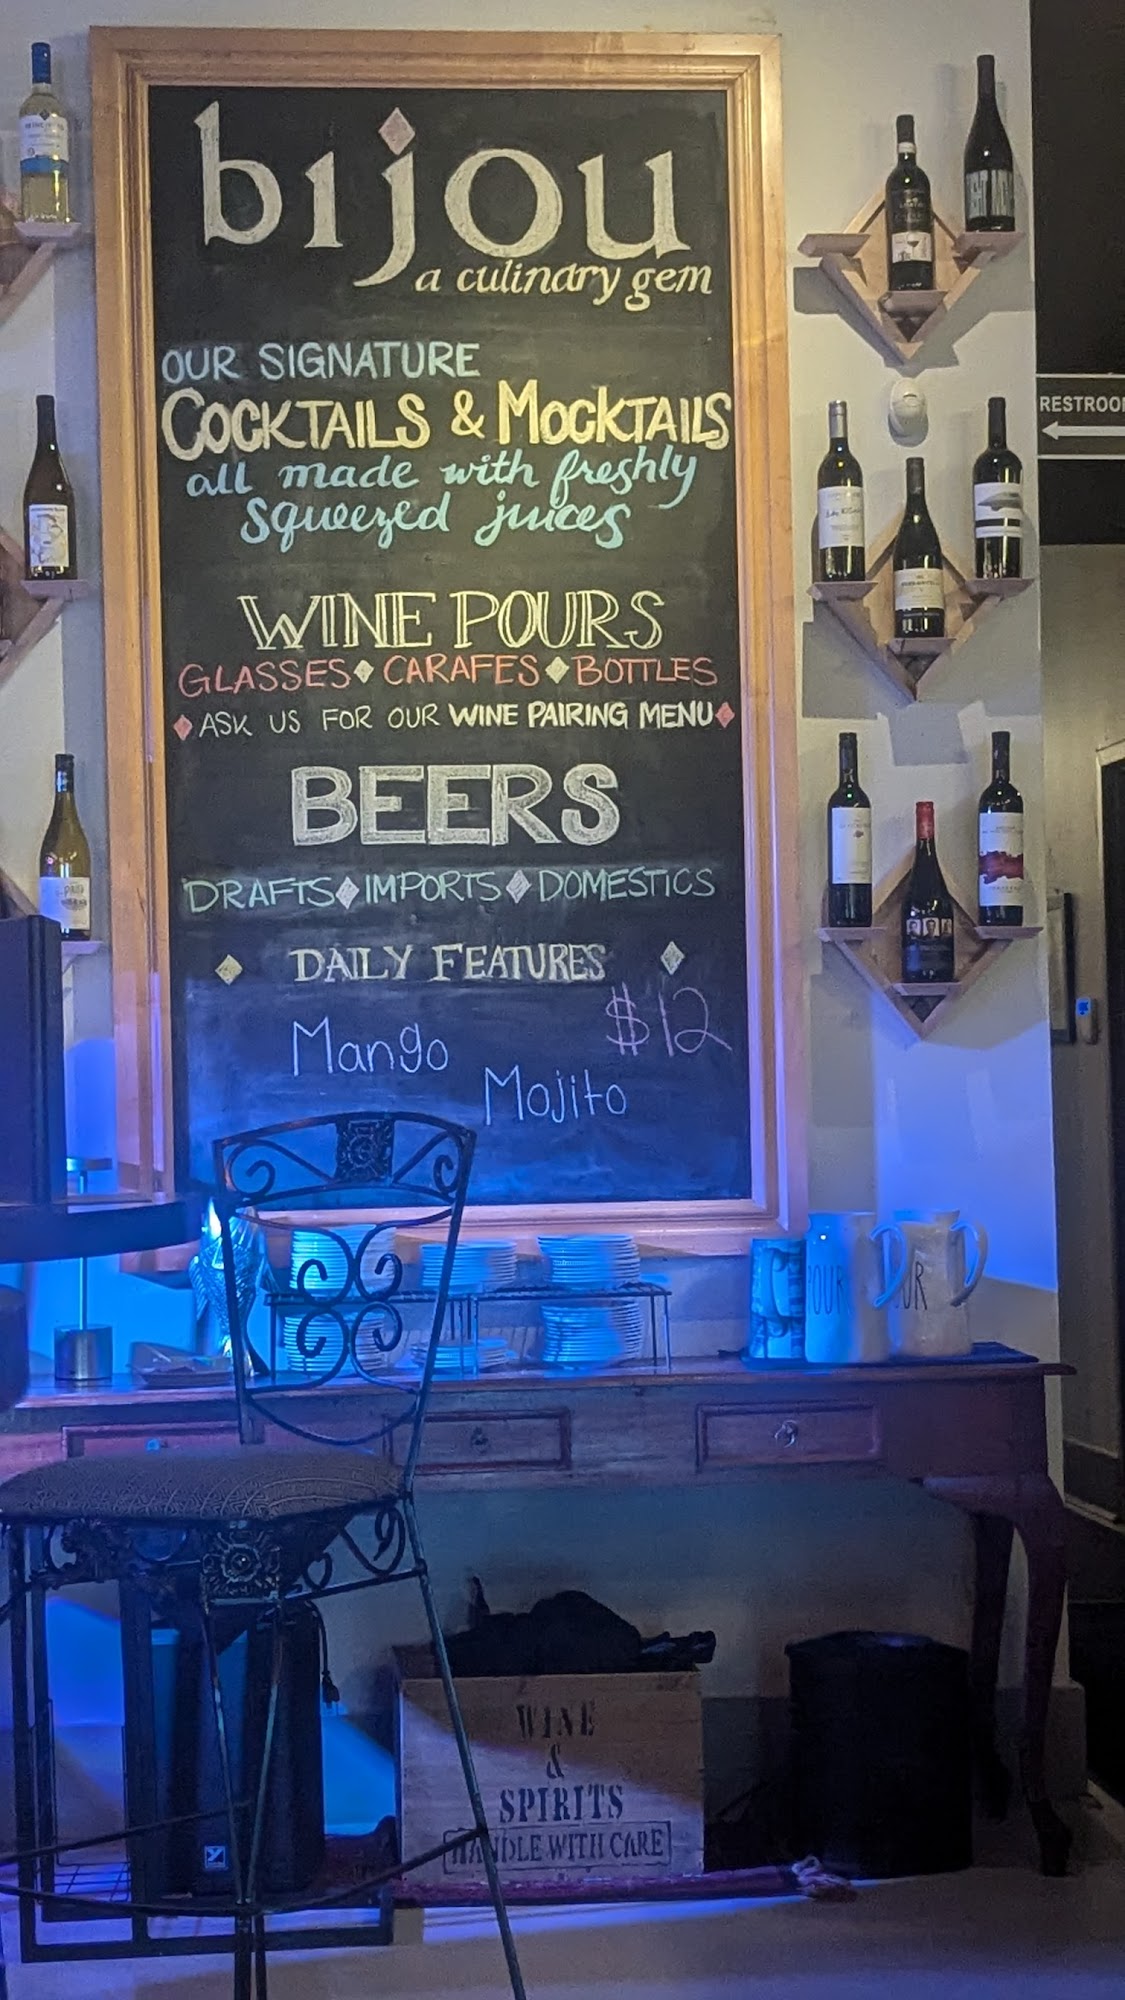 bijou
a culinary gem
OUR SIGNATURE
COCKTAILS & MOCKTAILS
all made with freshly
squeezed juices
WINE POURS
GLASSES CARAFES BOTTLES
ASK US FOR OUR WINE PAIRING MENU
BEERS
DRAFTS IMPORTS DOMESTICS
DAILY FEATURES
$12
Mango
Mojito
RESTROO
POUR
UR
WINE
&
SPIRITS
HANDLE WITH CARE